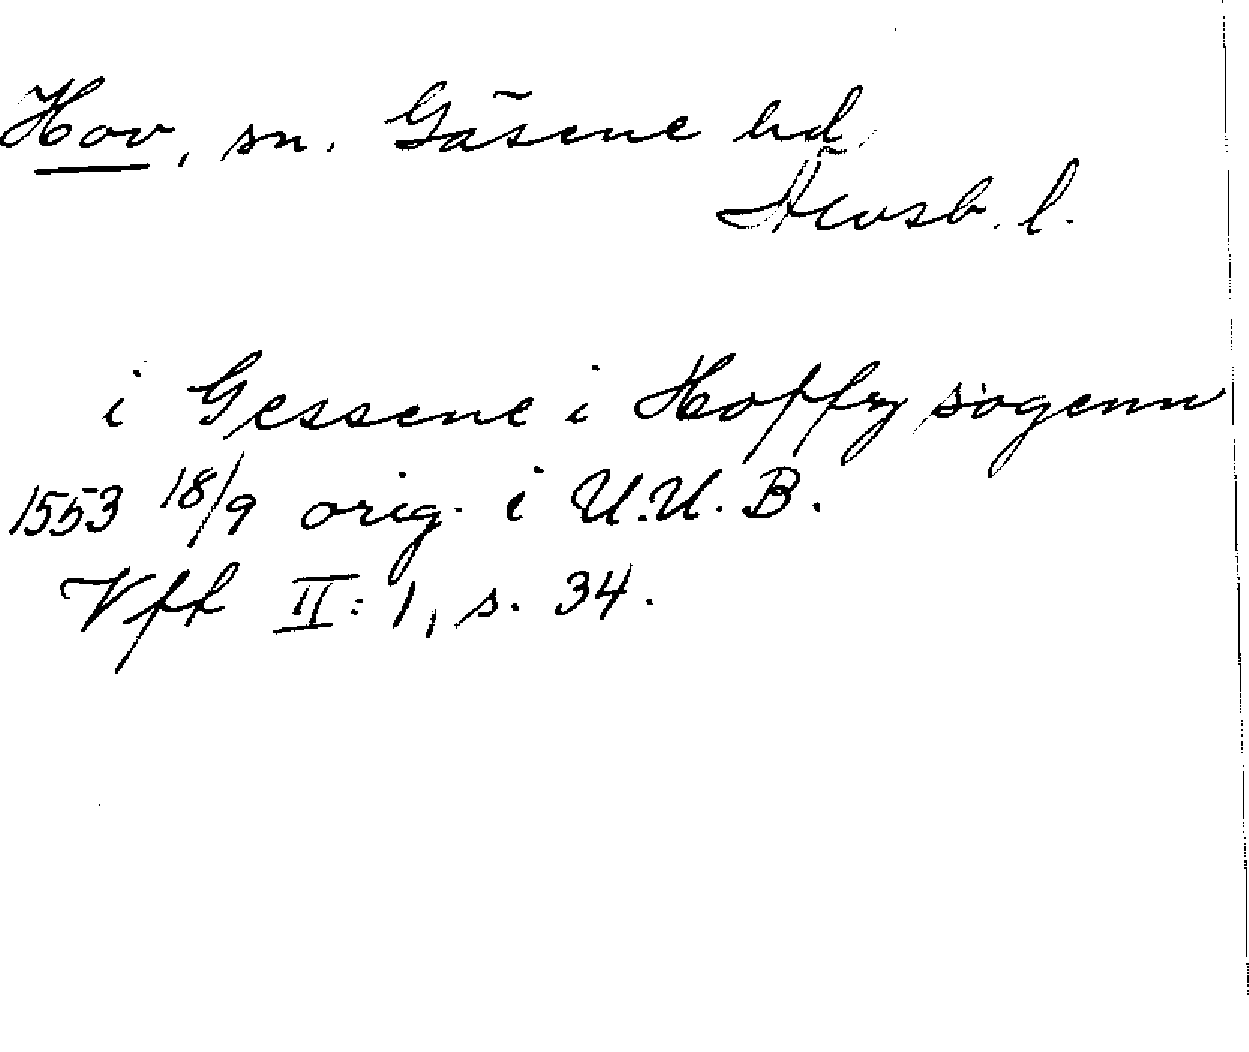 Hov, sn. Gäsene hd,
Älvsb. l.
i Gessene i Hoffzsogenn
1553 18/9 orig. i U.U.B.
Vff II:1, s. 34.